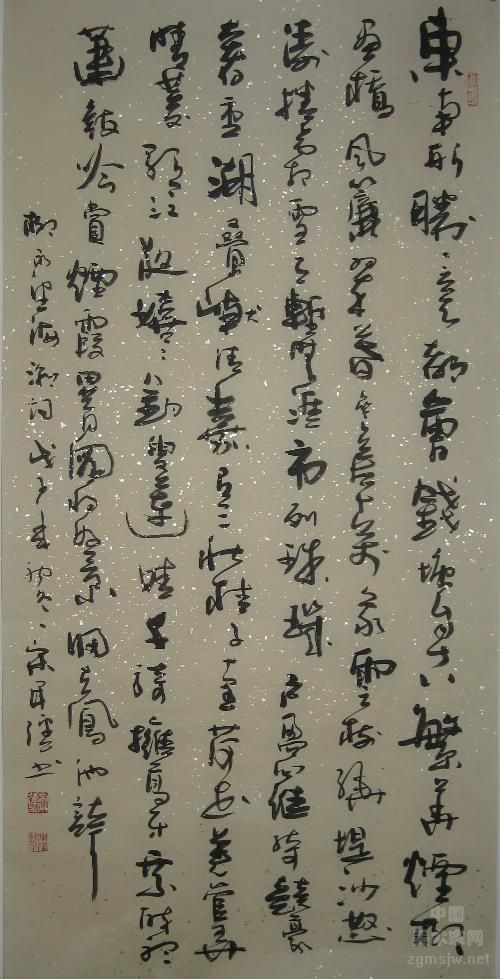 東南形勝三吴都會錢塘自古繁華煙柳
畫橋風簾翠幕參差十萬人家雲樹繞堤沙怒
濤捲霜雪天塹無涯市列珠璣戶盈羅綺競豪
奢重湖疊巘清嘉有三秋桂子十里荷花羌管弄
晴菱歌泛夜嬉嬉釣叟蓮娃千騎擁高牙乘醉聽
簫鼓吟賞煙霞異日圖將好景歸去鳳池誇
柳永望海潮詞戊子書
中国美术家网
zgmsjw.net